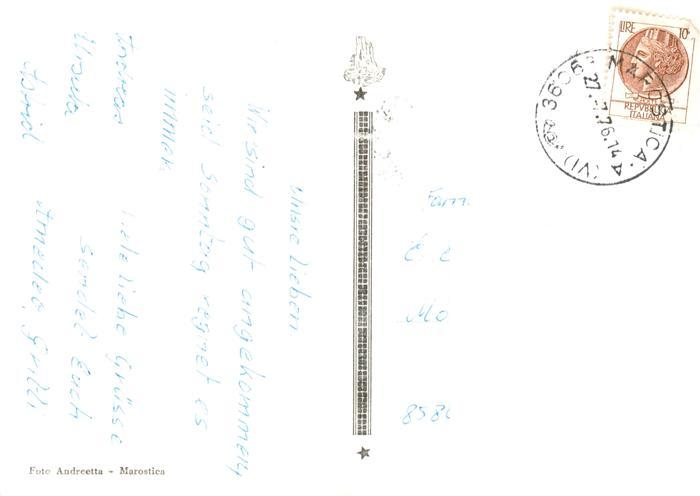 Unsre lieben.
Wir sind gut angekommen
seid Sonntag regnet es
immer.
Viele liebe Grüsse
sendet Euch
Amedeo, Grilli
Andreas
Ursula
Astrid
Fam.
Mo
858
Foto Andreetta - Marostica
LIRE 10
REPVBBLICA
ITALIANA
36063 MAROSTICA · A (VI)
27.-7.76.14